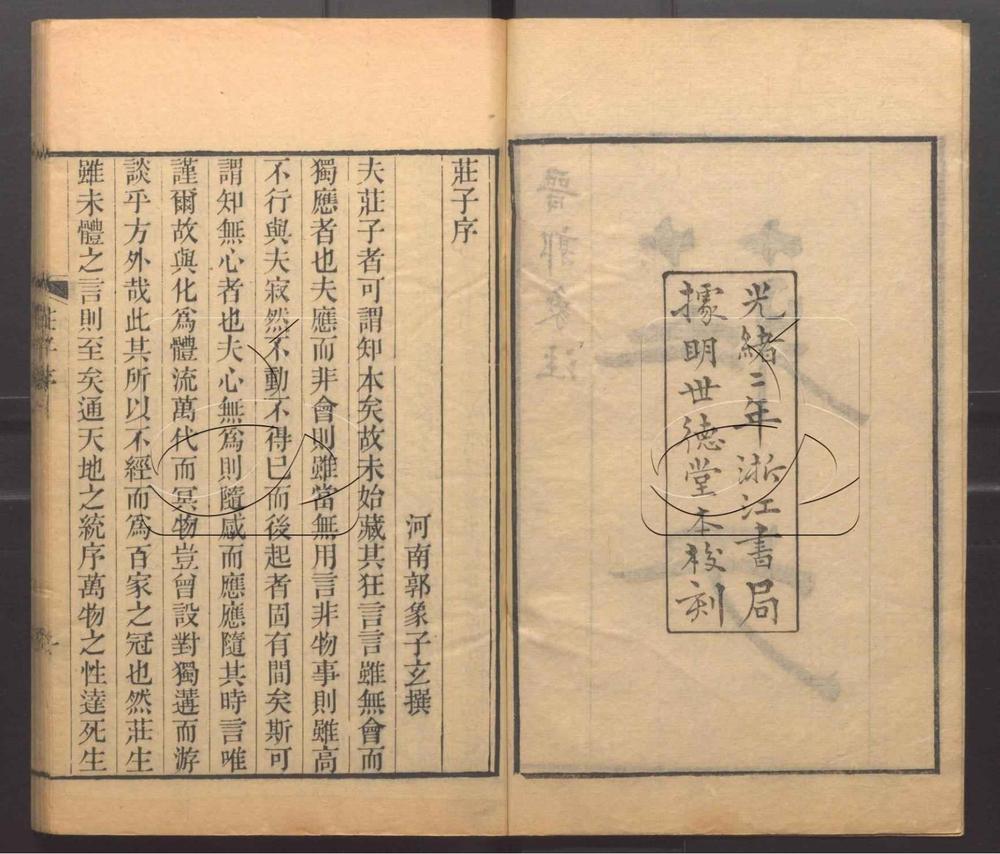 光緒二年浙江書局
據明世德堂本校刻
莊子序
河南郭象子玄撰
夫莊子者可謂知本矣故未始藏其狂言言雖無會而
獨應者也夫應而非會則雖當無用言非物事則雖高
不行與夫寂然不動不得已而後起者固有間矣斯可
謂知無心者也夫心無為則隨感而應應隨其時言唯
謹爾故與化為體流萬代而冥物豈曾設對獨遘而游
談乎方外哉此其所以不經而為百家之冠也然莊生
雖未體之言則至矣通天地之統序萬物之性達死生